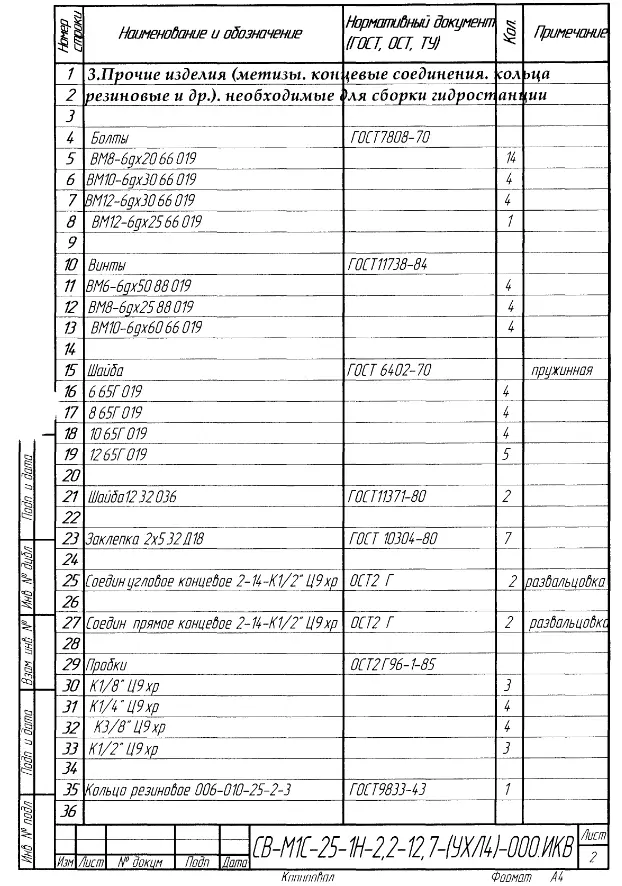 Номер строки Наименование и обозначение Нормативный документ (ГОСТ, ОСТ, ТУ) Кол. Примечание
1 3.Прочие изделия (метизы. концевые соединения. кольца
2 резиновые и др.). необходимые для сборки гидростанции
3
4 Болты ГОСТ7808-70
5 ВМ8-6gх20 66 019 14
6 ВМ10-6gх30 66 019 4
7 ВМ12-6gх30 66 019 4
8 ВМ12-6gх25 66 019 1
9
10 Винты ГОСТ11738-84
11 ВМ6-6gх50 88 019 4
12 ВМ8-6gх25 88 019 4
13 ВМ10-6gх60 66 019 4
14
15 Шайба ГОСТ 6402-70 пружинная
16 6 65Г 019 4
17 8 65Г 019 4
18 10 65Г 019 4
19 12 65Г 019 5
20
21 Шайба12 32 036 ГОСТ11371-80 2
22
23 Заклепка 2х5 32 Д18 ГОСТ 10304-80 7
24
25 Соедин угловое концевое 2-14-К1/2" Ц9 хр ОСТ2 Г 2 развальцовка
26
27 Соедин прямое концевое 2-14-К1/2" Ц9 хр ОСТ2 Г 2 развальцовка
28
29 Пробки ОСТ2 Г96-1-85
30 К1/8" Ц9 хр 3
31 К1/4" Ц9 хр 4
32 К3/8" Ц9 хр 4
33 К1/2" Ц9 хр 3
34
35 Кольцо резиновое 006-010-25-2-3 ГОСТ9833-43 1
36
Подп и дата
Инв № дубл
Взам инв №
Подп и дата
Инв № подл
СВ-М1С-25-1Н-2,2-12,7-(УХЛ4)-000.ИКВ
Лист
2
Изм Лист № докум Подп Дата
Копировал Формат А4